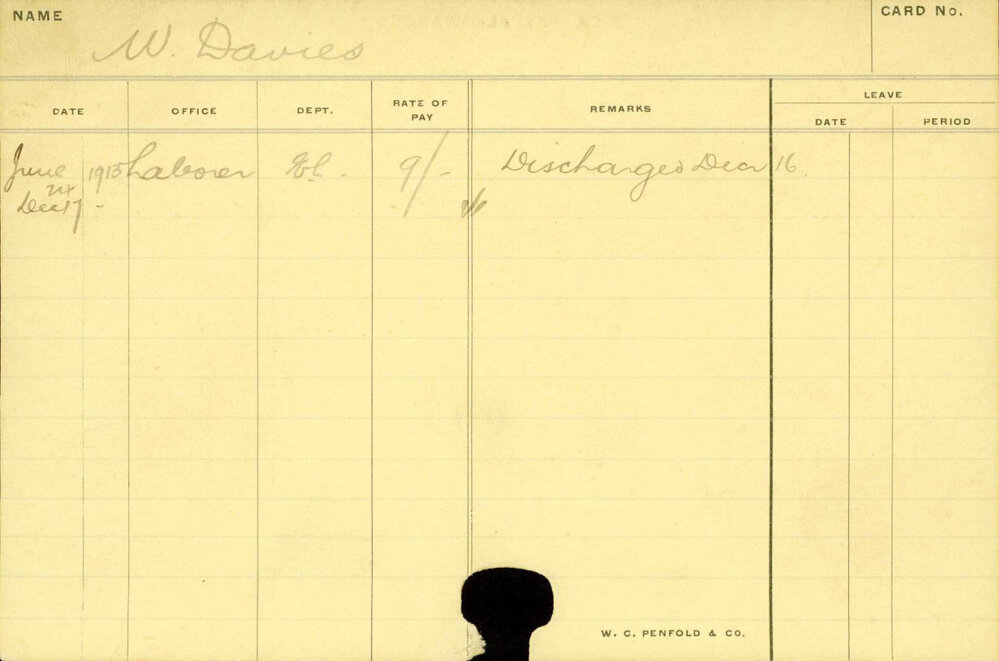 NAME
W. Davies
CARD No.
DATE OFFICE DEPT. RATE OF PAY REMARKS LEAVE
DATE PERIOD
June 1913 Laborer 9/- Discharged Decr 16
24
Dec 17 -
W. C. PENFOLD & CO.